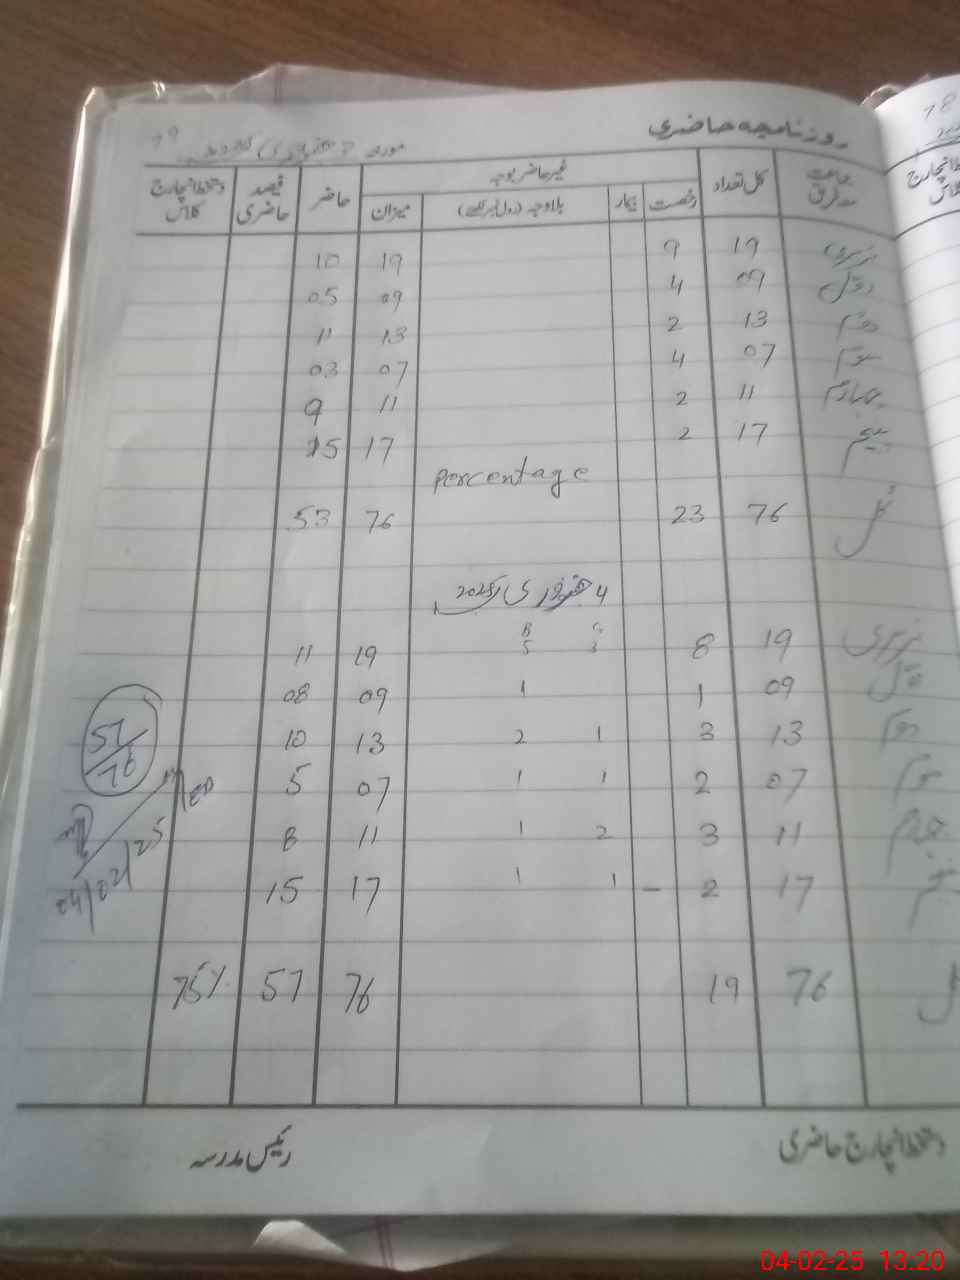 79
روزنامچہ حاضری
مورخہ 3 فروری
جماعت مع فریق کل تعداد غیر حاضر بوجہ حاضر فیصد حاضری دستخط انچارج کلاس
رخصت بیمار بلاوجہ (رول نمبر لکھیے) میزان
نرسری 19 9 19 10
اول 09 4 09 05
دوم 13 2 13 11
سوم 07 4 07 03
چہارم 11 2 11 9
پنجم 17 2 17 15
percentage
کل 76 23 76 53
4 فروری 2025
G B
نرسری 19 8 3 5 19 11
اول 09 1 1 09 08
دوم 13 3 1 2 13 10
سوم 07 2 1 1 07 5
چہارم 11 3 2 1 11 8
پنجم 17 2 – 1 1 17 15
کل 76 19 76 57 75%
57/76
04/02/25
دستخط انچارج حاضری
رئیس مدرسہ
78
انچارج کلاس
04-02-25 13:20